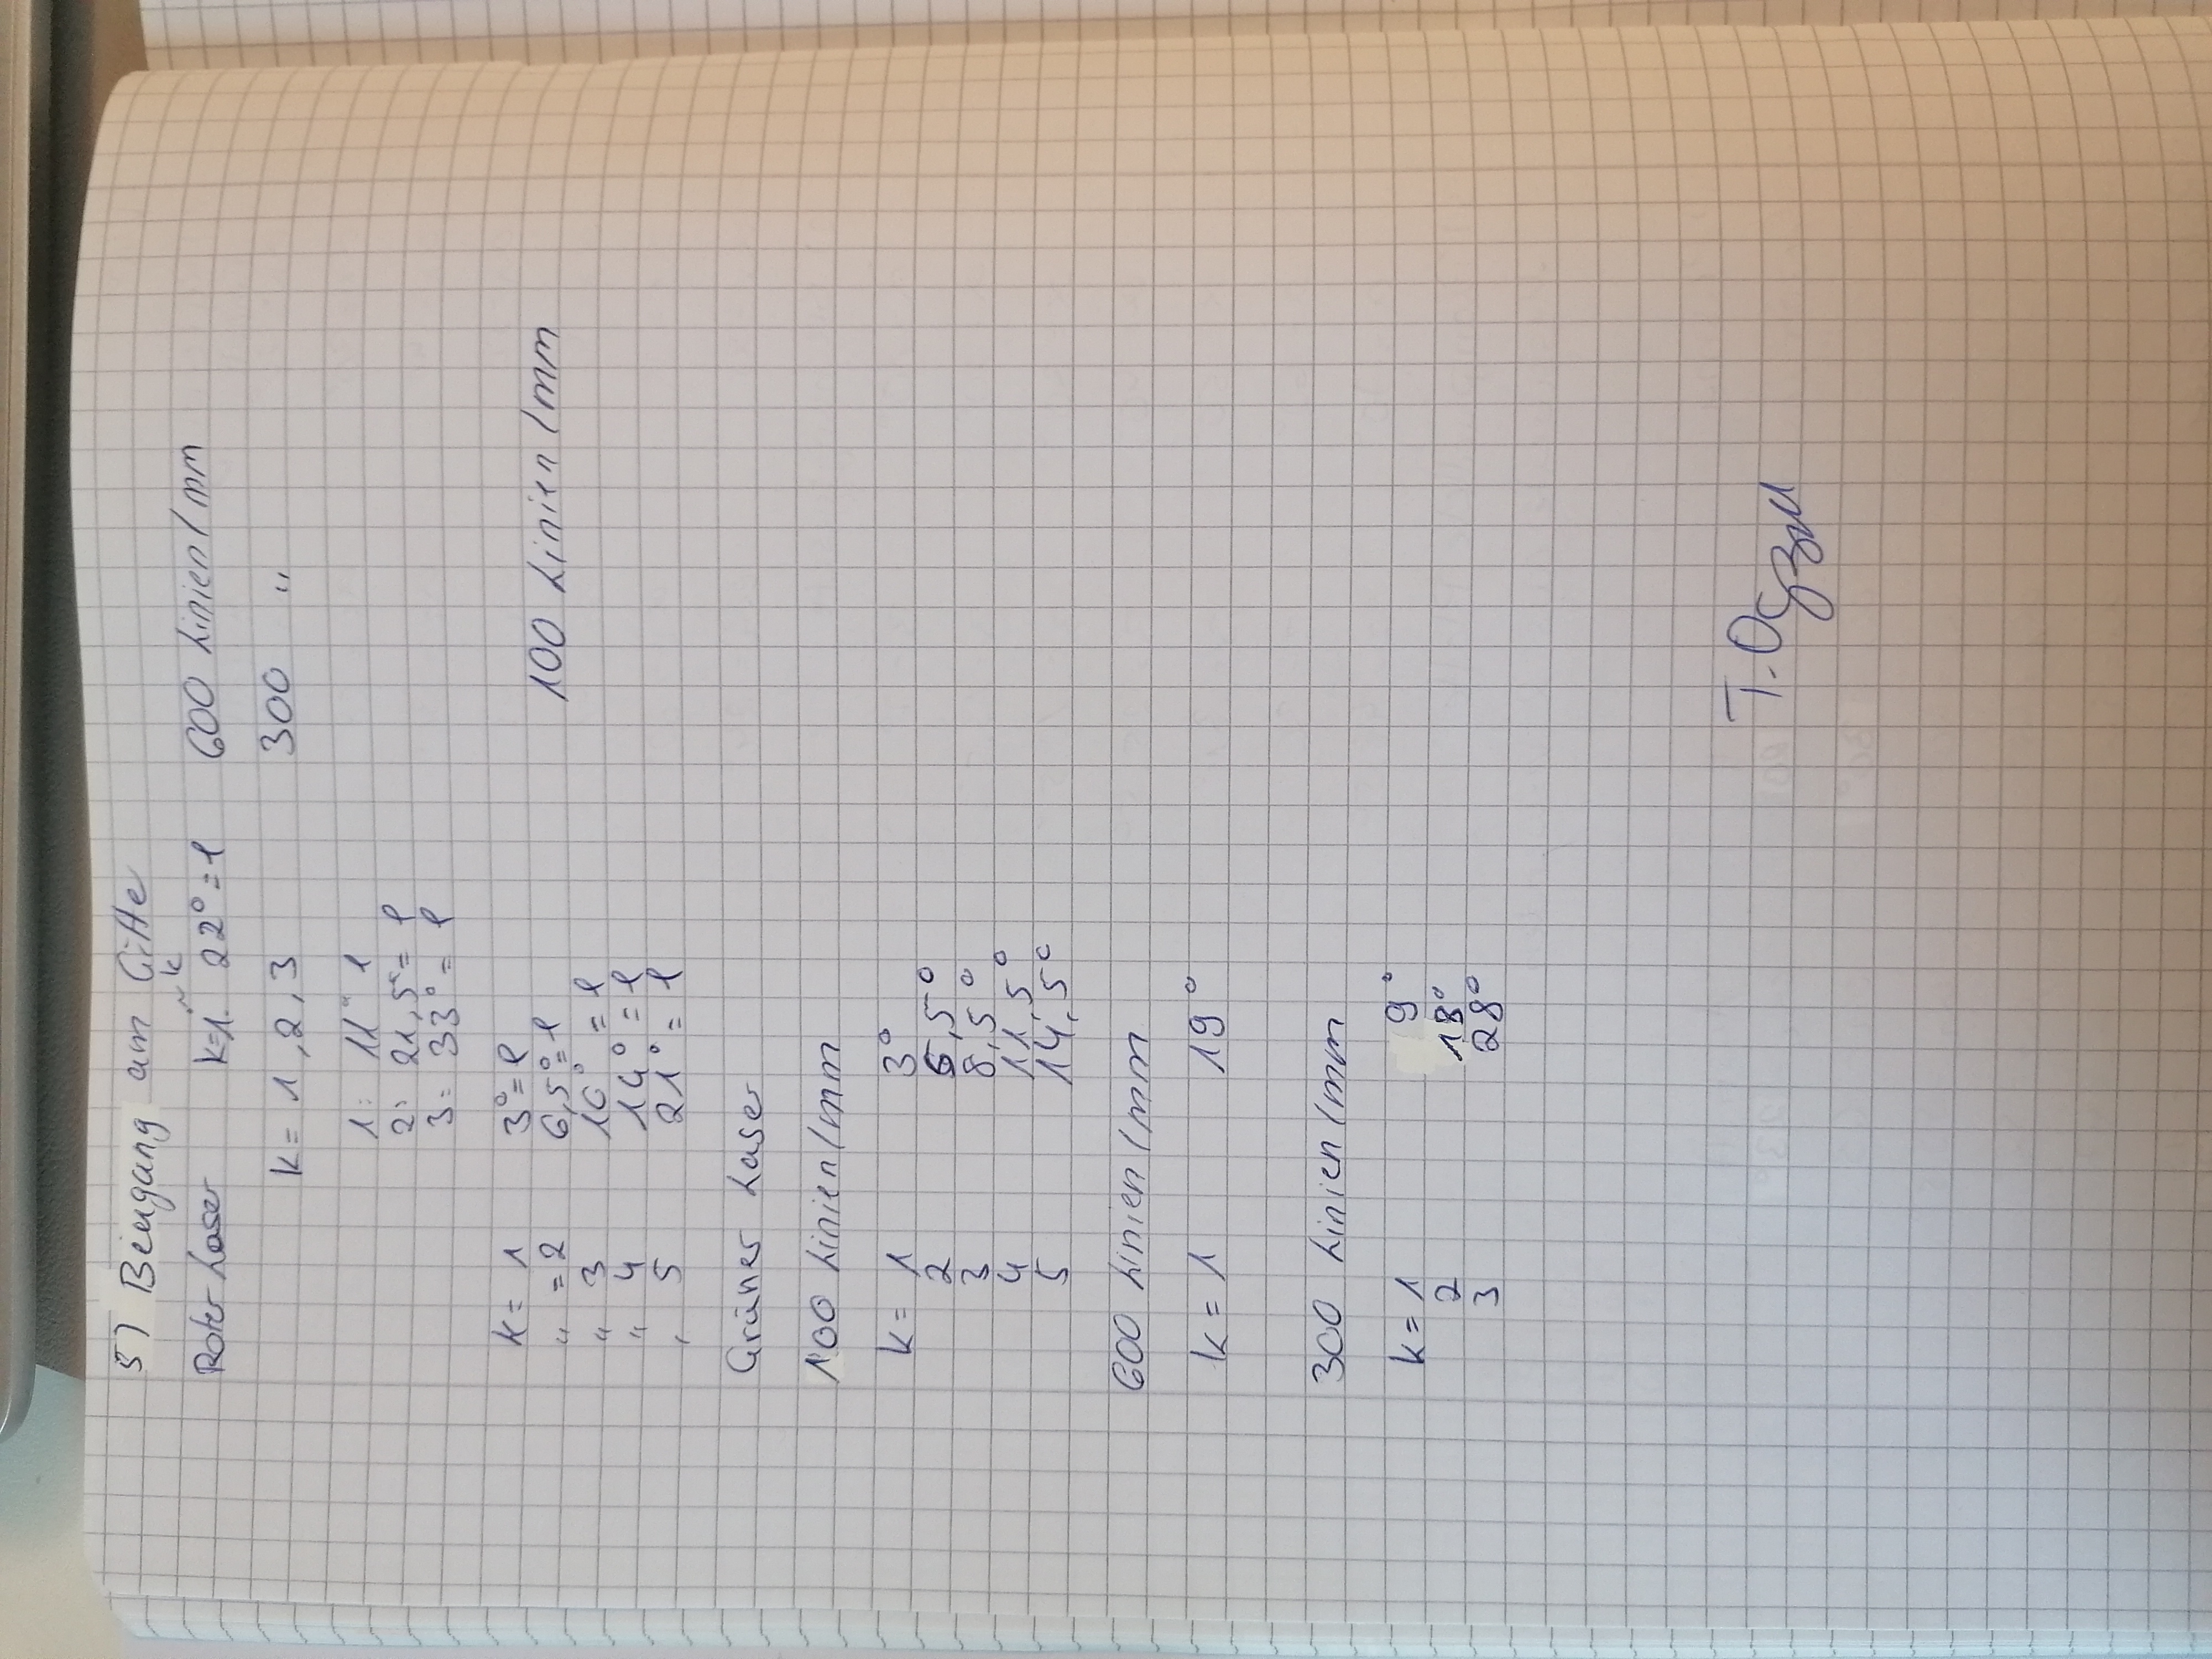 5) Beugung am Gitte
k
Roter Laser k=1 22°=l 600 Linien/mm
k = 1,2,3 300 "
1: 11° l
2: 21,5°= l
3: 33° = l
k= 1 3°=l 100 Linien/mm
" =2 6,5°=l
" 3 10° = l
" 4 14° = l
" 5 21° = l
Grüner Laser
100 Linien/mm
k = 1 3°
2 6,5°
3 8,5°
4 11,5°
5 14,5°
600 Linien/mm
k = 1 19°
300 Linien/mm
k = 1 9°
2 18°
3 28°